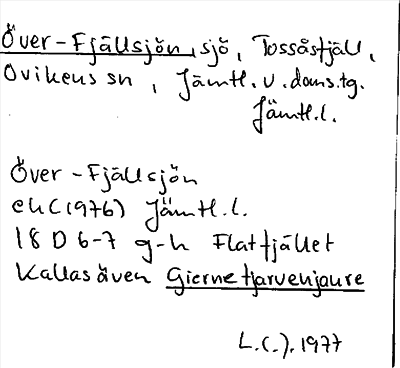 Över-Fjällsjön, sjö, Tossåsfjäll,
Ovikens sn, Jämtl. v. doms.tg.
Jämtl.l.
Över-Fjällsjön
ekC(1976) Jämtl.l.
18 D 6-7 g-h Flatfjället
Kallas även Giernetjarvenjaure
L.(.). 1977